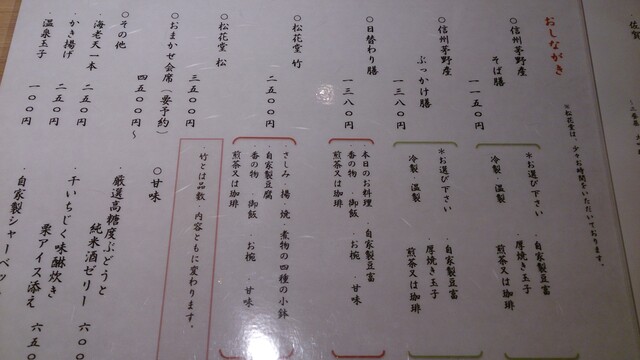 おしながき
※松花堂は、少々お時間をいただいております。
○信州茅野産
そば膳
一一五〇円
*お選び下さい
冷製 温製
・自家製豆富
・厚焼き玉子
・煎茶又は珈琲
○信州茅野産
ぶっかけ膳
一三八〇円
*お選び下さい
冷製 温製
・自家製豆富
・厚焼き玉子
・煎茶又は珈琲
○日替わり膳
一三八〇円
・本日のお料理 ・自家製豆富
・香の物 ・御飯 ・お椀 ・甘味
・煎茶又は珈琲
○松花堂 竹
二五〇〇円
・さしみ・揚・焼・煮物の四種の小鉢
・自家製豆腐
・香の物 ・御飯 ・お椀 ・甘味
・煎茶又は珈琲
○松花堂 松
三五〇〇円
竹とは品数、内容ともに変わります。
○おまかせ会席(要予約)
四五〇〇円~
○その他
・海老天一本 二五〇円
・かき揚げ 二五〇円
・温泉玉子 一〇〇円
○甘味
・厳選高糖度ぶどうと
純米酒ゼリー 六〇〇
・干いちじく味醂炊き
栗アイス添え 六五〇
・自家製シャーベッ
佐賀